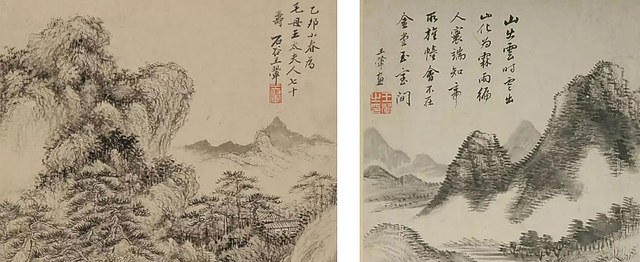 乙邜小春為
毛母王太夫人七十
壽 石谷王翬
山出雲時雲出
山化為霖雨徧
人寰端知帝
所會不在
金堂玉室間